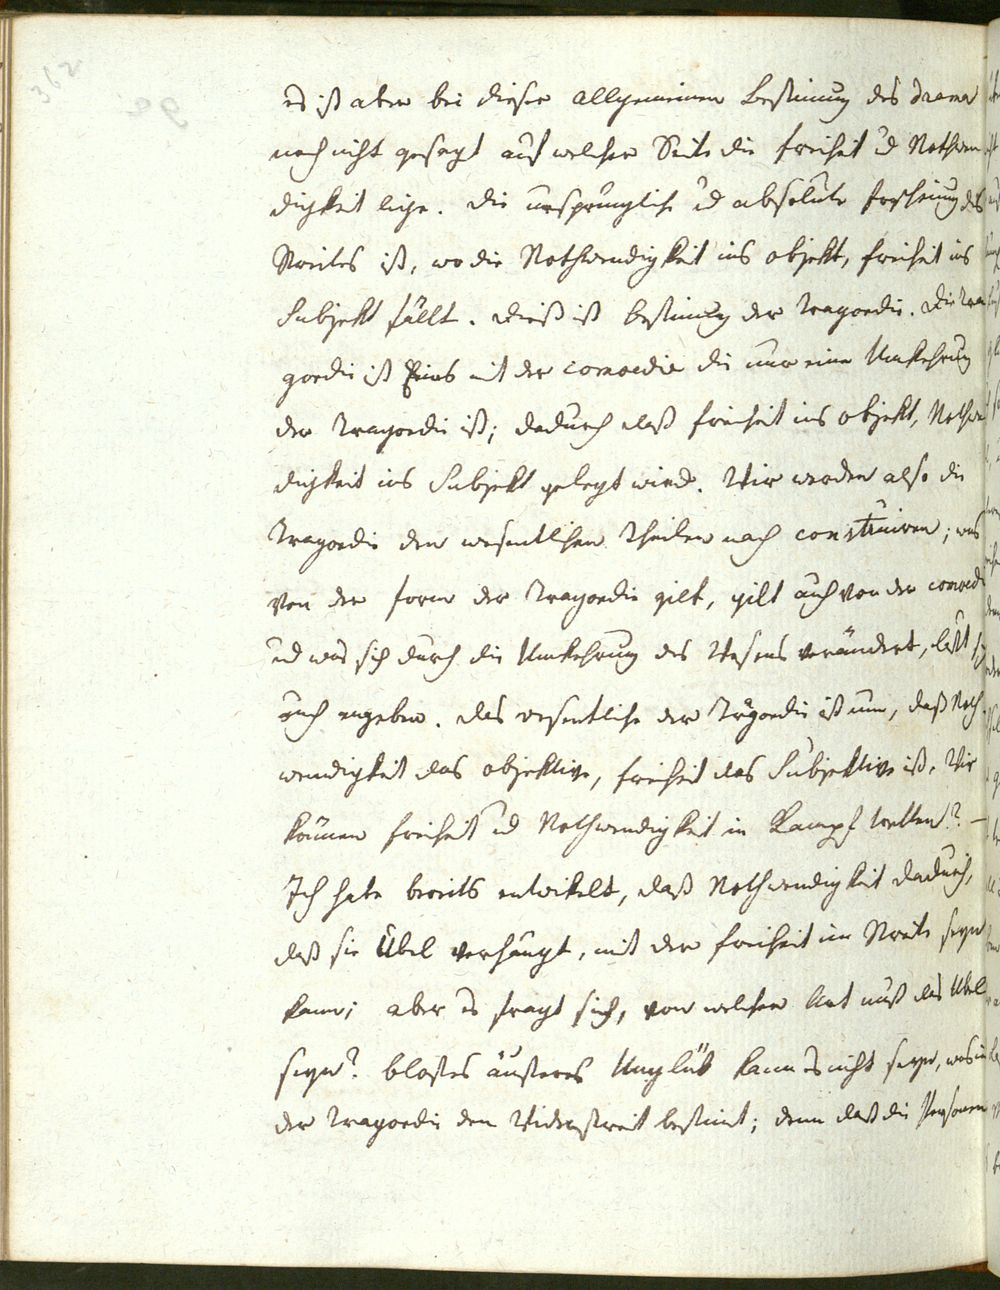 362
es ist aber bei dieser allgemeinen Bestimung des Drama
noch nicht gesagt auf welcher Seite die Freiheit ud Nothwen
digkeit liege. Die ursprünglich ud absolute Erscheinung des
Streites ist, wo die Nothwendigkeit ins Objekt, Freiheit ins
Subjekt fällt. Dieß ist Bestimug der Tragoedie. Die Tra
goedie ist Prius mit der Comoedie die nur eine Umkehrung
der Tragoedie ist; dadurch daß Freiheit ins Objekt, Nothwe
digkeit ins Subjekt gelegt wird. Wir werden also die
Tragoedie den wesentlichen Theilen nach construiren; was
von der Form der Tragoedie gilt, gilt auch von der Comoed
ud was sich durch die Umkehrung des Wesens verändert, läßt sich
auch angeben. Das wesentliche der Tragoedie ist nun, daß Noth
wendigkeit das Objektive, Freiheit das Subjektive ist. Wie
können Freiheit ud Nothwendigkeit in Kampf tretten? –
Ich habe bereits entwikelt, daß Nothwendigkeit dadurch,
daß sie Übel verhängt, mit der Freiheit im Streite seyn
kann; aber es fragt sich, von welcher Art muß das Übel
seyn? bloßes äußeres Unglük kann es nicht seyn, was in
der Tragoedie den Widerstreit bestimt; denn daß die Personen